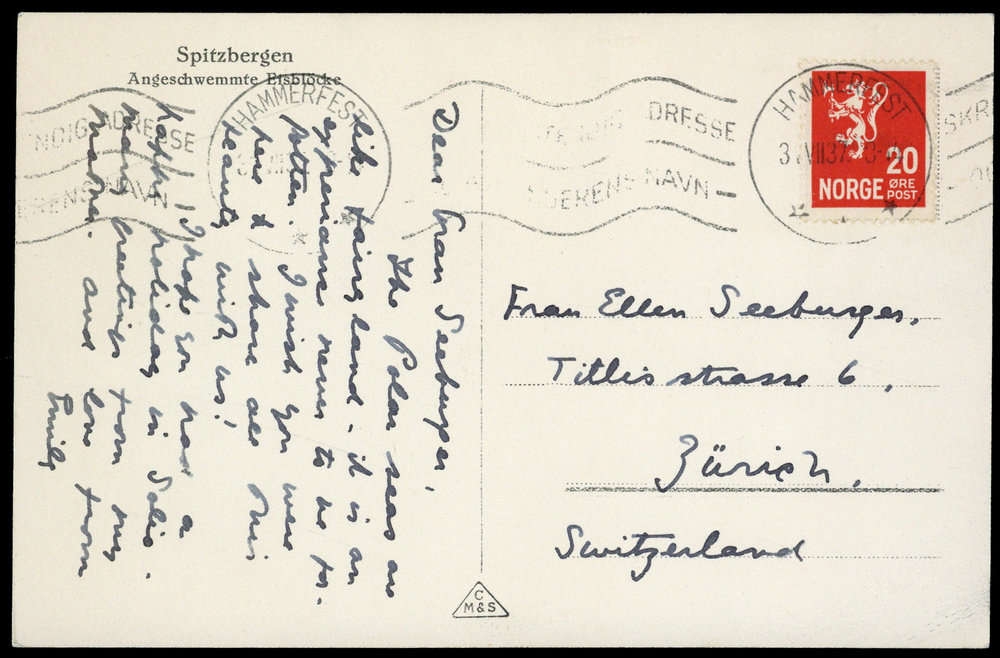 Spitzbergen
Angeschwemmte Eisblöcke
HAMMERFEST
NDIG ADRESSE
ERENS NAVN
DRESSE
DERENS NAVN
HAMMERFEST
VII 37
SKR
20
NORGE ØRE
POST
Dear Frau Seeburger,
The Polar seas are
like fairyland. it is an
experience never to be for-
gotten. I wish you were
here to share all this
beauty with us!
I hope you had a
happy holiday in Salis.
Many greetings from my
mother. and love from
Emily
Frau Ellen Seeburger,
Titlisstrasse 6,
Zürich,
Switzerland
C
M&S